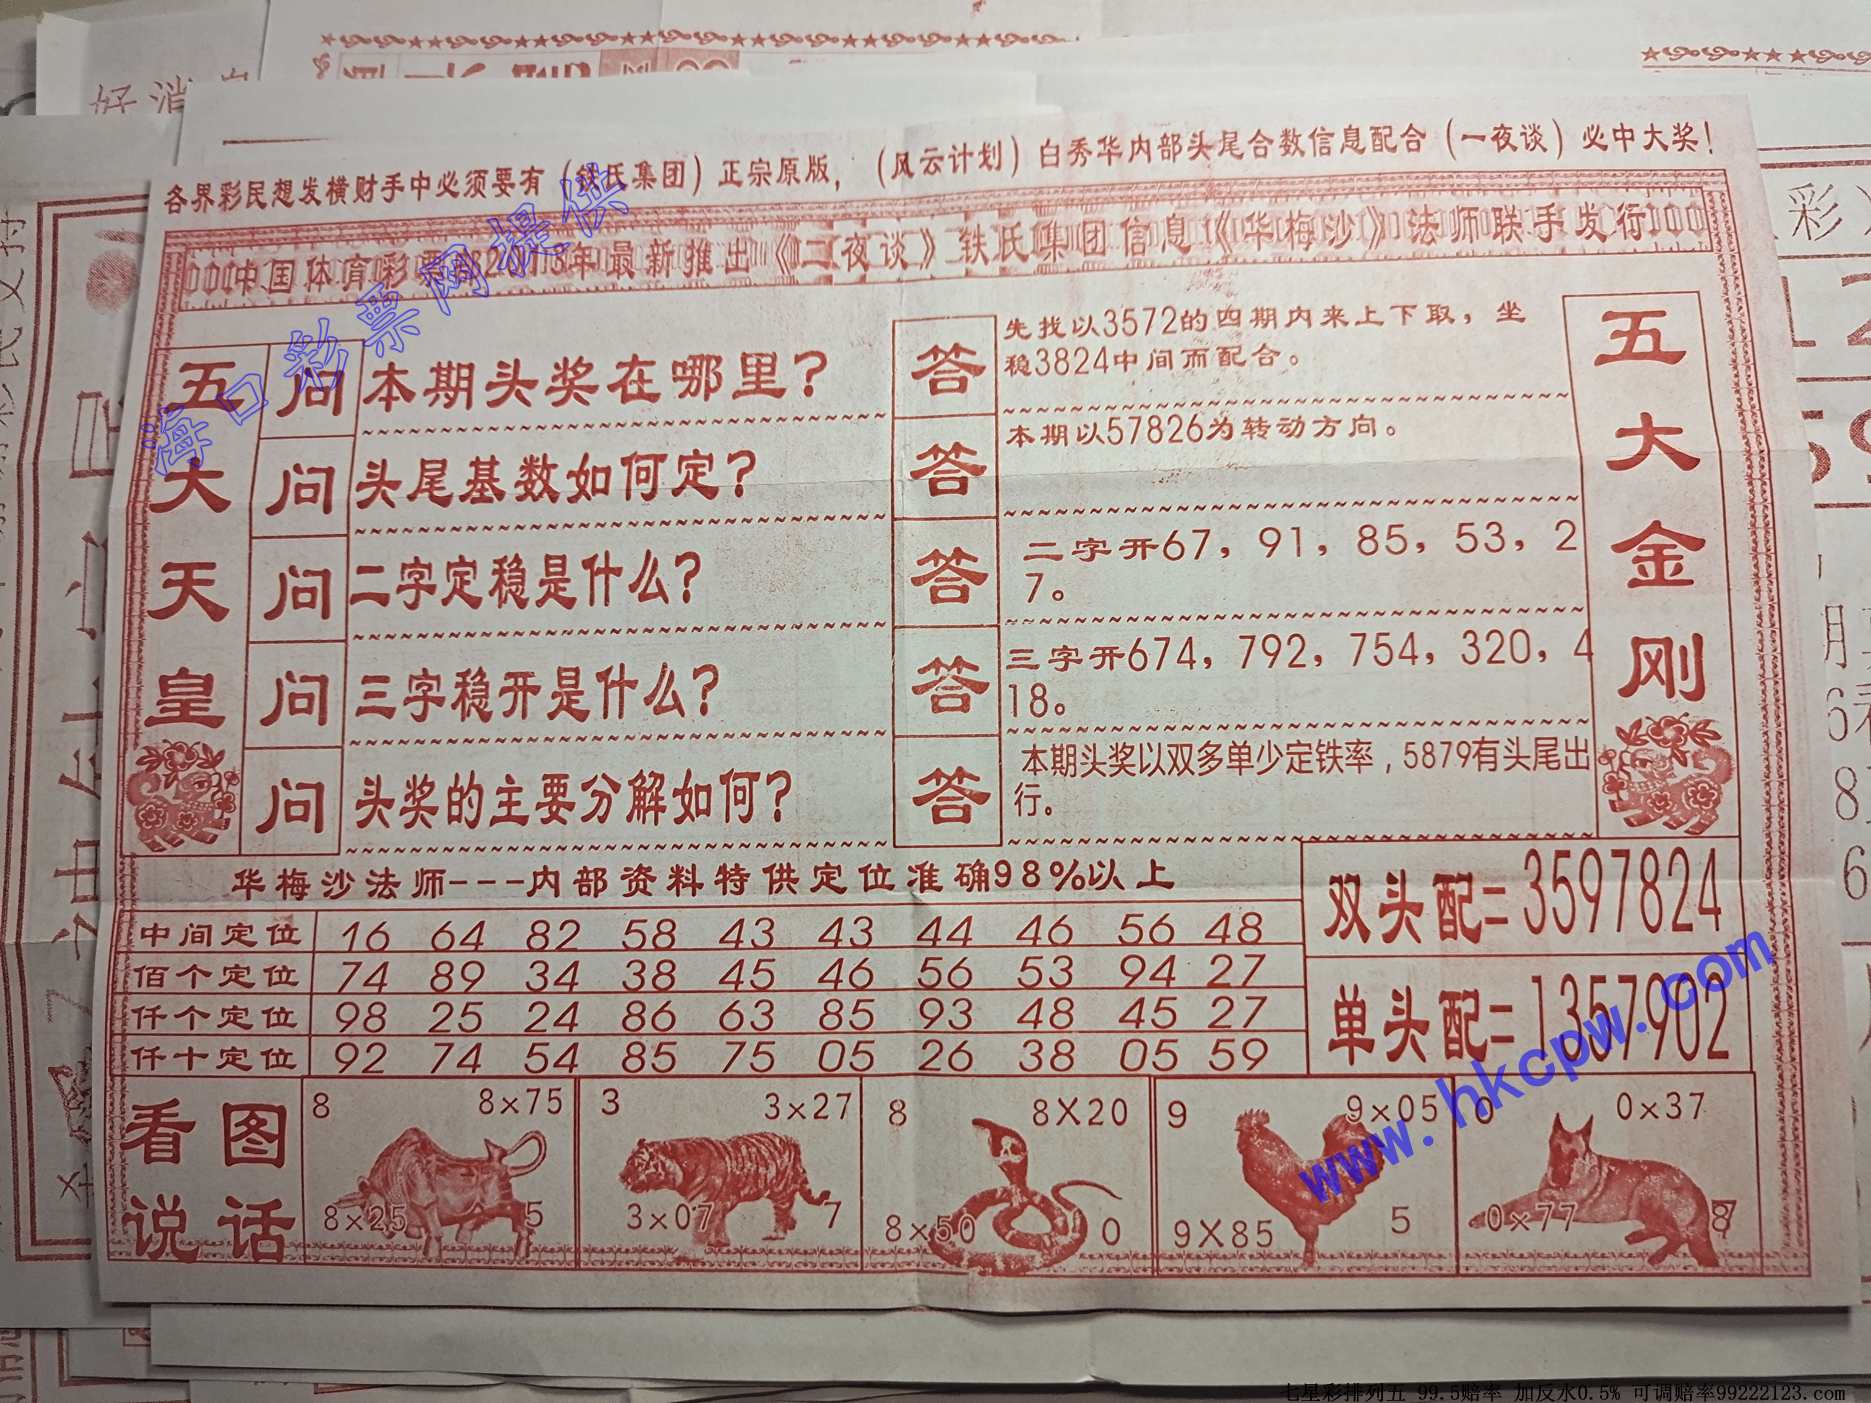 各界彩民想发横财手中必须要有（铁氏集团）正宗原版，（风云计划）白秀华内部头尾合数信息配合（一夜谈）必中大奖！
年最新推出《二夜谈》铁氏集团信息《华梅沙》法师联手发行
海口彩票网提供
五大天皇
问 本期头奖在哪里？
答 先找以3572的四期内来上下取，坐
稳3824中间而配合。
问 头尾基数如何定？
答 本期以57826为转动方向。
问 二字定稳是什么？
答 二字开67，91，85，53，2
7。
问 三字稳开是什么？
答 三字开674，792，754，320，4
18。
问 头奖的主要分解如何？
答 本期头奖以双多单少定铁率，5879有头尾出
行。
五大金刚
华梅沙法师---内部资料特供定位准确98%以上
中间定位 16 64 82 58 43 43 44 46 56 48
佰个定位 74 89 34 38 45 46 56 53 94 27
仟个定位 98 25 24 86 63 85 93 48 45 27
仟十定位 92 74 54 85 75 05 26 38 05 59
双头配=3597824
单头配=1357902
www.hkcpw.com
看图
说话
8 8×75
8×25 5
3 3×27
3×07 7
8 8X20
8×50 0
9 9×05
9X85 5
0 0×37
0×77
七星彩排列五 99.5赔率 加反水0.5% 可调赔率99222123.com